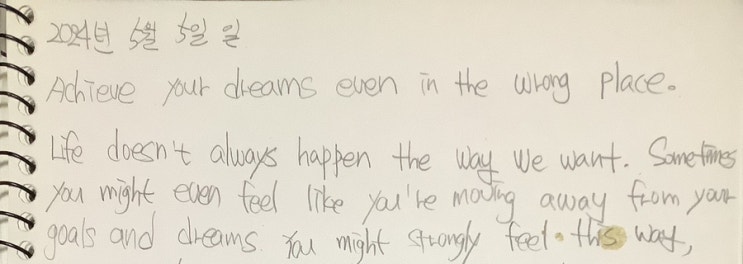 2024년 5월 5일 일
Achieve your dreams even in the wrong place.
Life doesn't always happen the way we want. Sometimes
you might even feel like you're moving away from your
goals and dreams. You might strongly feel this way,